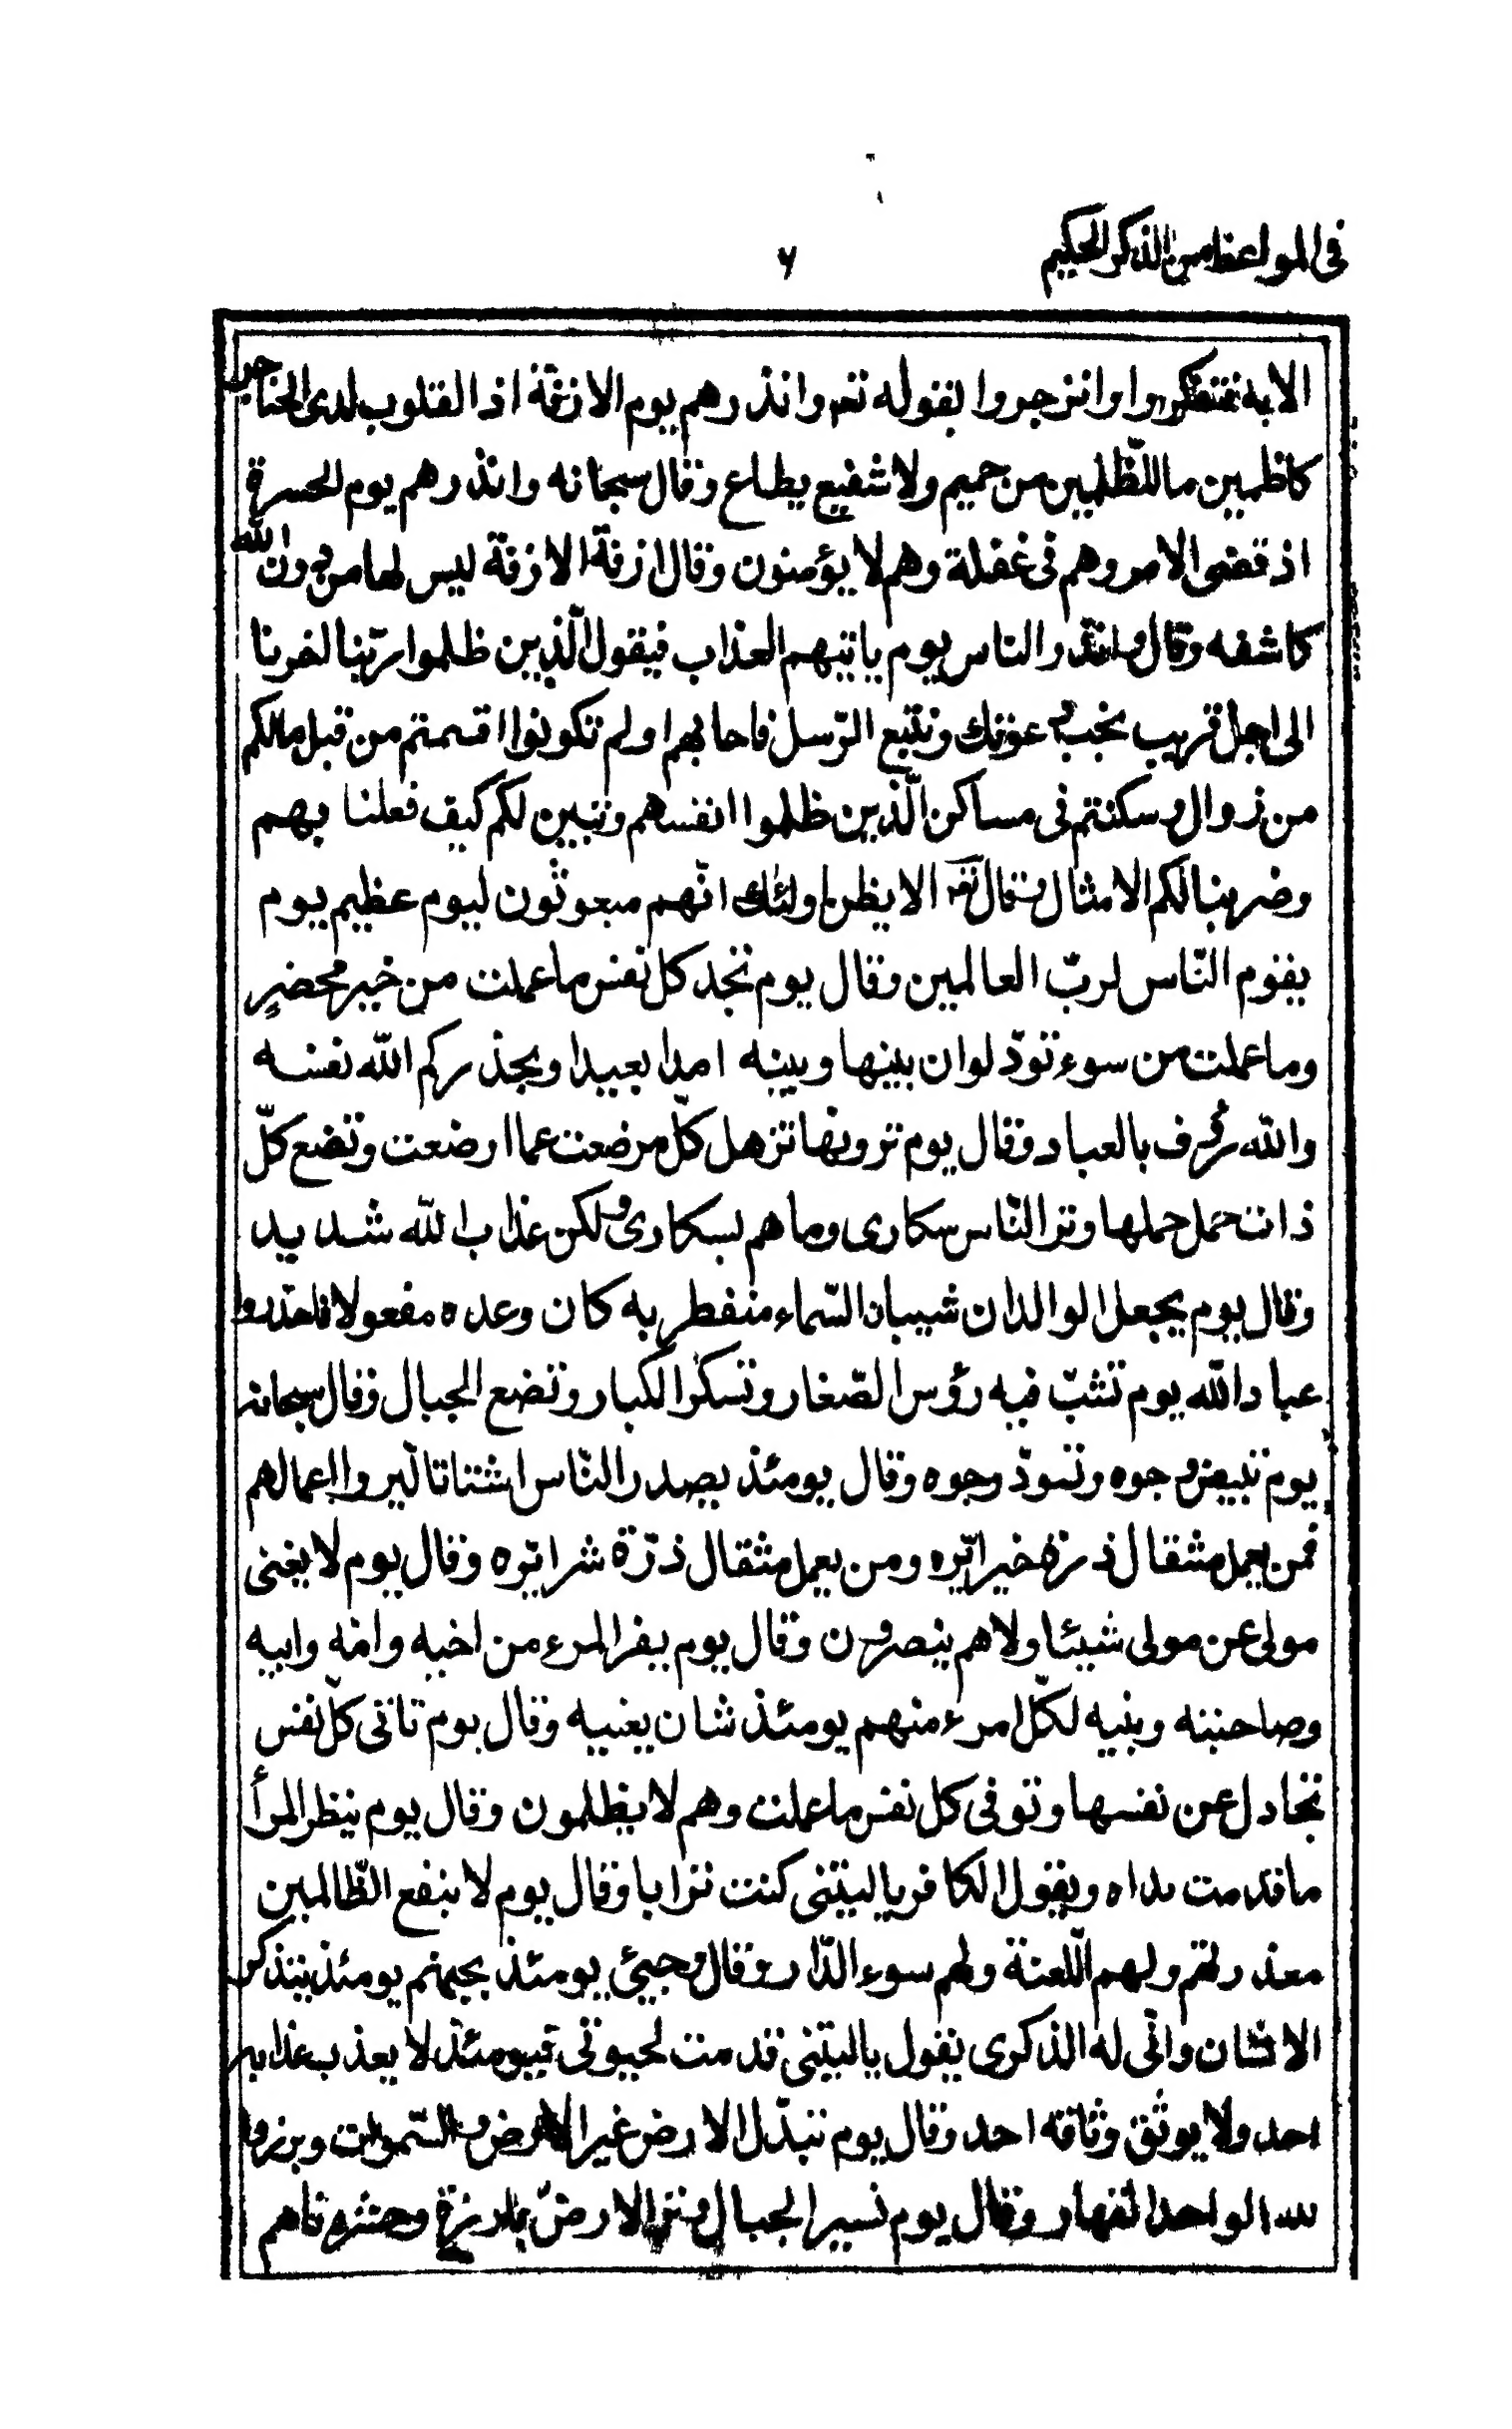 فى المواعظ من الذكر الحكيم
٦
الايه فتفكروا وانزجروا بقوله تعر وانذرهم يوم الازفة اذ القلوب لدى الحناجر
كاظمين ما للظلمين من حميم ولا شفيع يطاع وقال سبحانه وانذرهم يوم الحسرة
اذ قضى الامر وهم فى غفلة وهم لا يؤمنون وقال ازفة الازفة ليس لها من دون الله
كاشفه وقال وانذر الناس يوم ياتيهم العذاب فيقول الّذين ظلموا ربّنا اخرنا
الى اجل قريب نجب دعوتك ونتّبع الرّسل فاجابهم اولم تكونوا اقسمتم من قبل مالكم
من زوال وسكنتم فى مساكن الّذين ظلموا انفسهم وتبين لكم كيف فعلنا بهم
وضربنا لكم الامثال وقال تعر الا يظن اولئك انّهم مبعوثون ليوم عظيم يوم
يقوم النّاس لربّ العالمين وقال يوم تجد كل نفس ما عملت من خير محضرٍ
وما عملت من سوء تودّ لو ان بينها وبينه امدا بعيدا ويحذركم الله نفسه
والله رؤف بالعباد وقال يوم ترونها تزهل كلّ مرضعت عما ارضعت وتضع كلّ
ذات حمل حملها وتر النّاس سكارى وما هم بسكارى ولكن عذاب الله شديد
وقال يوم يجعل الوالدان شيبان السّماء منفطر به كان وعده مفعولا فاحذروا
عباد الله يوم تشبّ فيه رؤس الصّغار وتسكر الكبار وتضع الجبال وقال سبحانه
يوم تبيض وجوه وتسودّ وجوه وقال يومئذ يصدر النّاس اشتاتا ليروا اعمالهم
فمن يعمل مثقال ذرة خيرا يّره ومن يعمل مثقال ذرّة شرا يّره وقال يوم لا يغنى
مولى عن مولى شيئا ولا هم ينصرون وقال يوم يفر المرء من اخيه وامّه وابيه
وصاحبته وبنيه لكلّ امرء منهم يومئذ شان يغنيه وقال يوم تاتى كلّ نفس
تجادل عن نفسها وتوفى كل نفس ما عملت وهم لا يظلمون وقال يوم ينظر المرأ
ما قدمت يداه ويقول الكافر ياليتنى كنت ترابا وقال يوم لا ينفع الظّالمين
معذرتهم ولهم اللّعنة ولهم سوء الدّار وقال وجيئ يومئذ بجهنم يومئذ يتذكر
الانسان وانّى له الذكرى يقول ياليتنى قدمت لحيوتى فيومئذ لا يعذب عذابه
احد ولا يوثق وثاقه احد وقال يوم تبدّل الارض غير الارض والسّموات وبرزوا
لله الواحد القهار وقال يوم نسير الجبال وتر الارض بارزة وحشرناهم